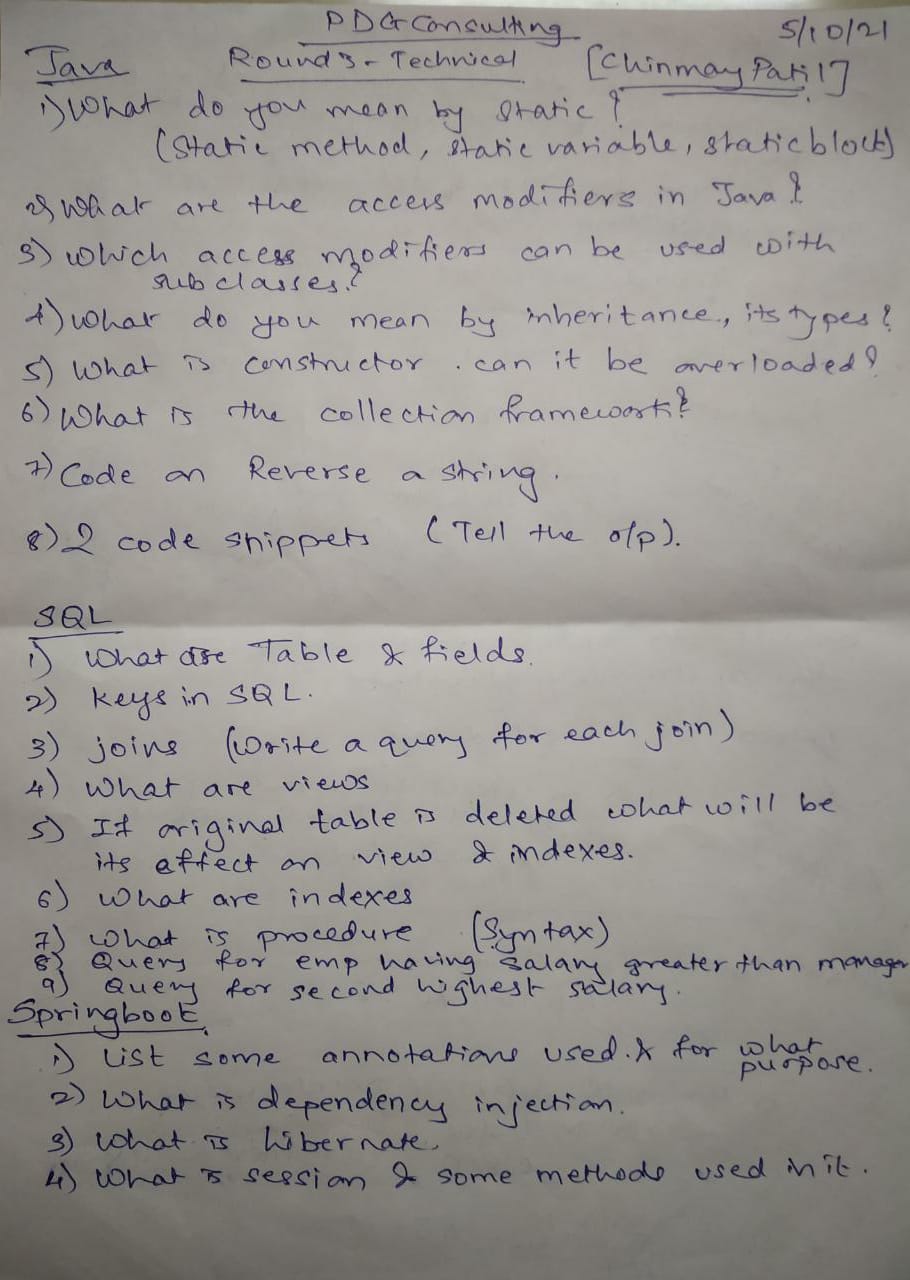 PDG Consulting 5/10/21
Java Round 3 - Technical [Chinmay Patil]
1) What do you mean by static?
(Static method, static variable, static block)
2) What are the access modifiers in Java?
3) which access modifiers can be used with
subclasses?
4) what do you mean by inheritance, its types?
5) What is constructor. can it be overloaded?
6) What is the collection framework?
7) Code on Reverse a string.
8) 2 code snippets (Tell the o/p).
SQL
1) What are Table & fields.
2) keys in SQL.
3) joins (Write a query for each join)
4) What are views
5) If original table is deleted what will be
its effect on view & indexes.
6) What are indexes
7) What is procedure (Syntax)
8) Query for emp having salary greater than manager
9) Query for second highest salary.
Springboot
1) List some annotations used. & for what
purpose.
2) What is dependency injection.
3) What is hibernate.
4) What is session & some methods used in it.